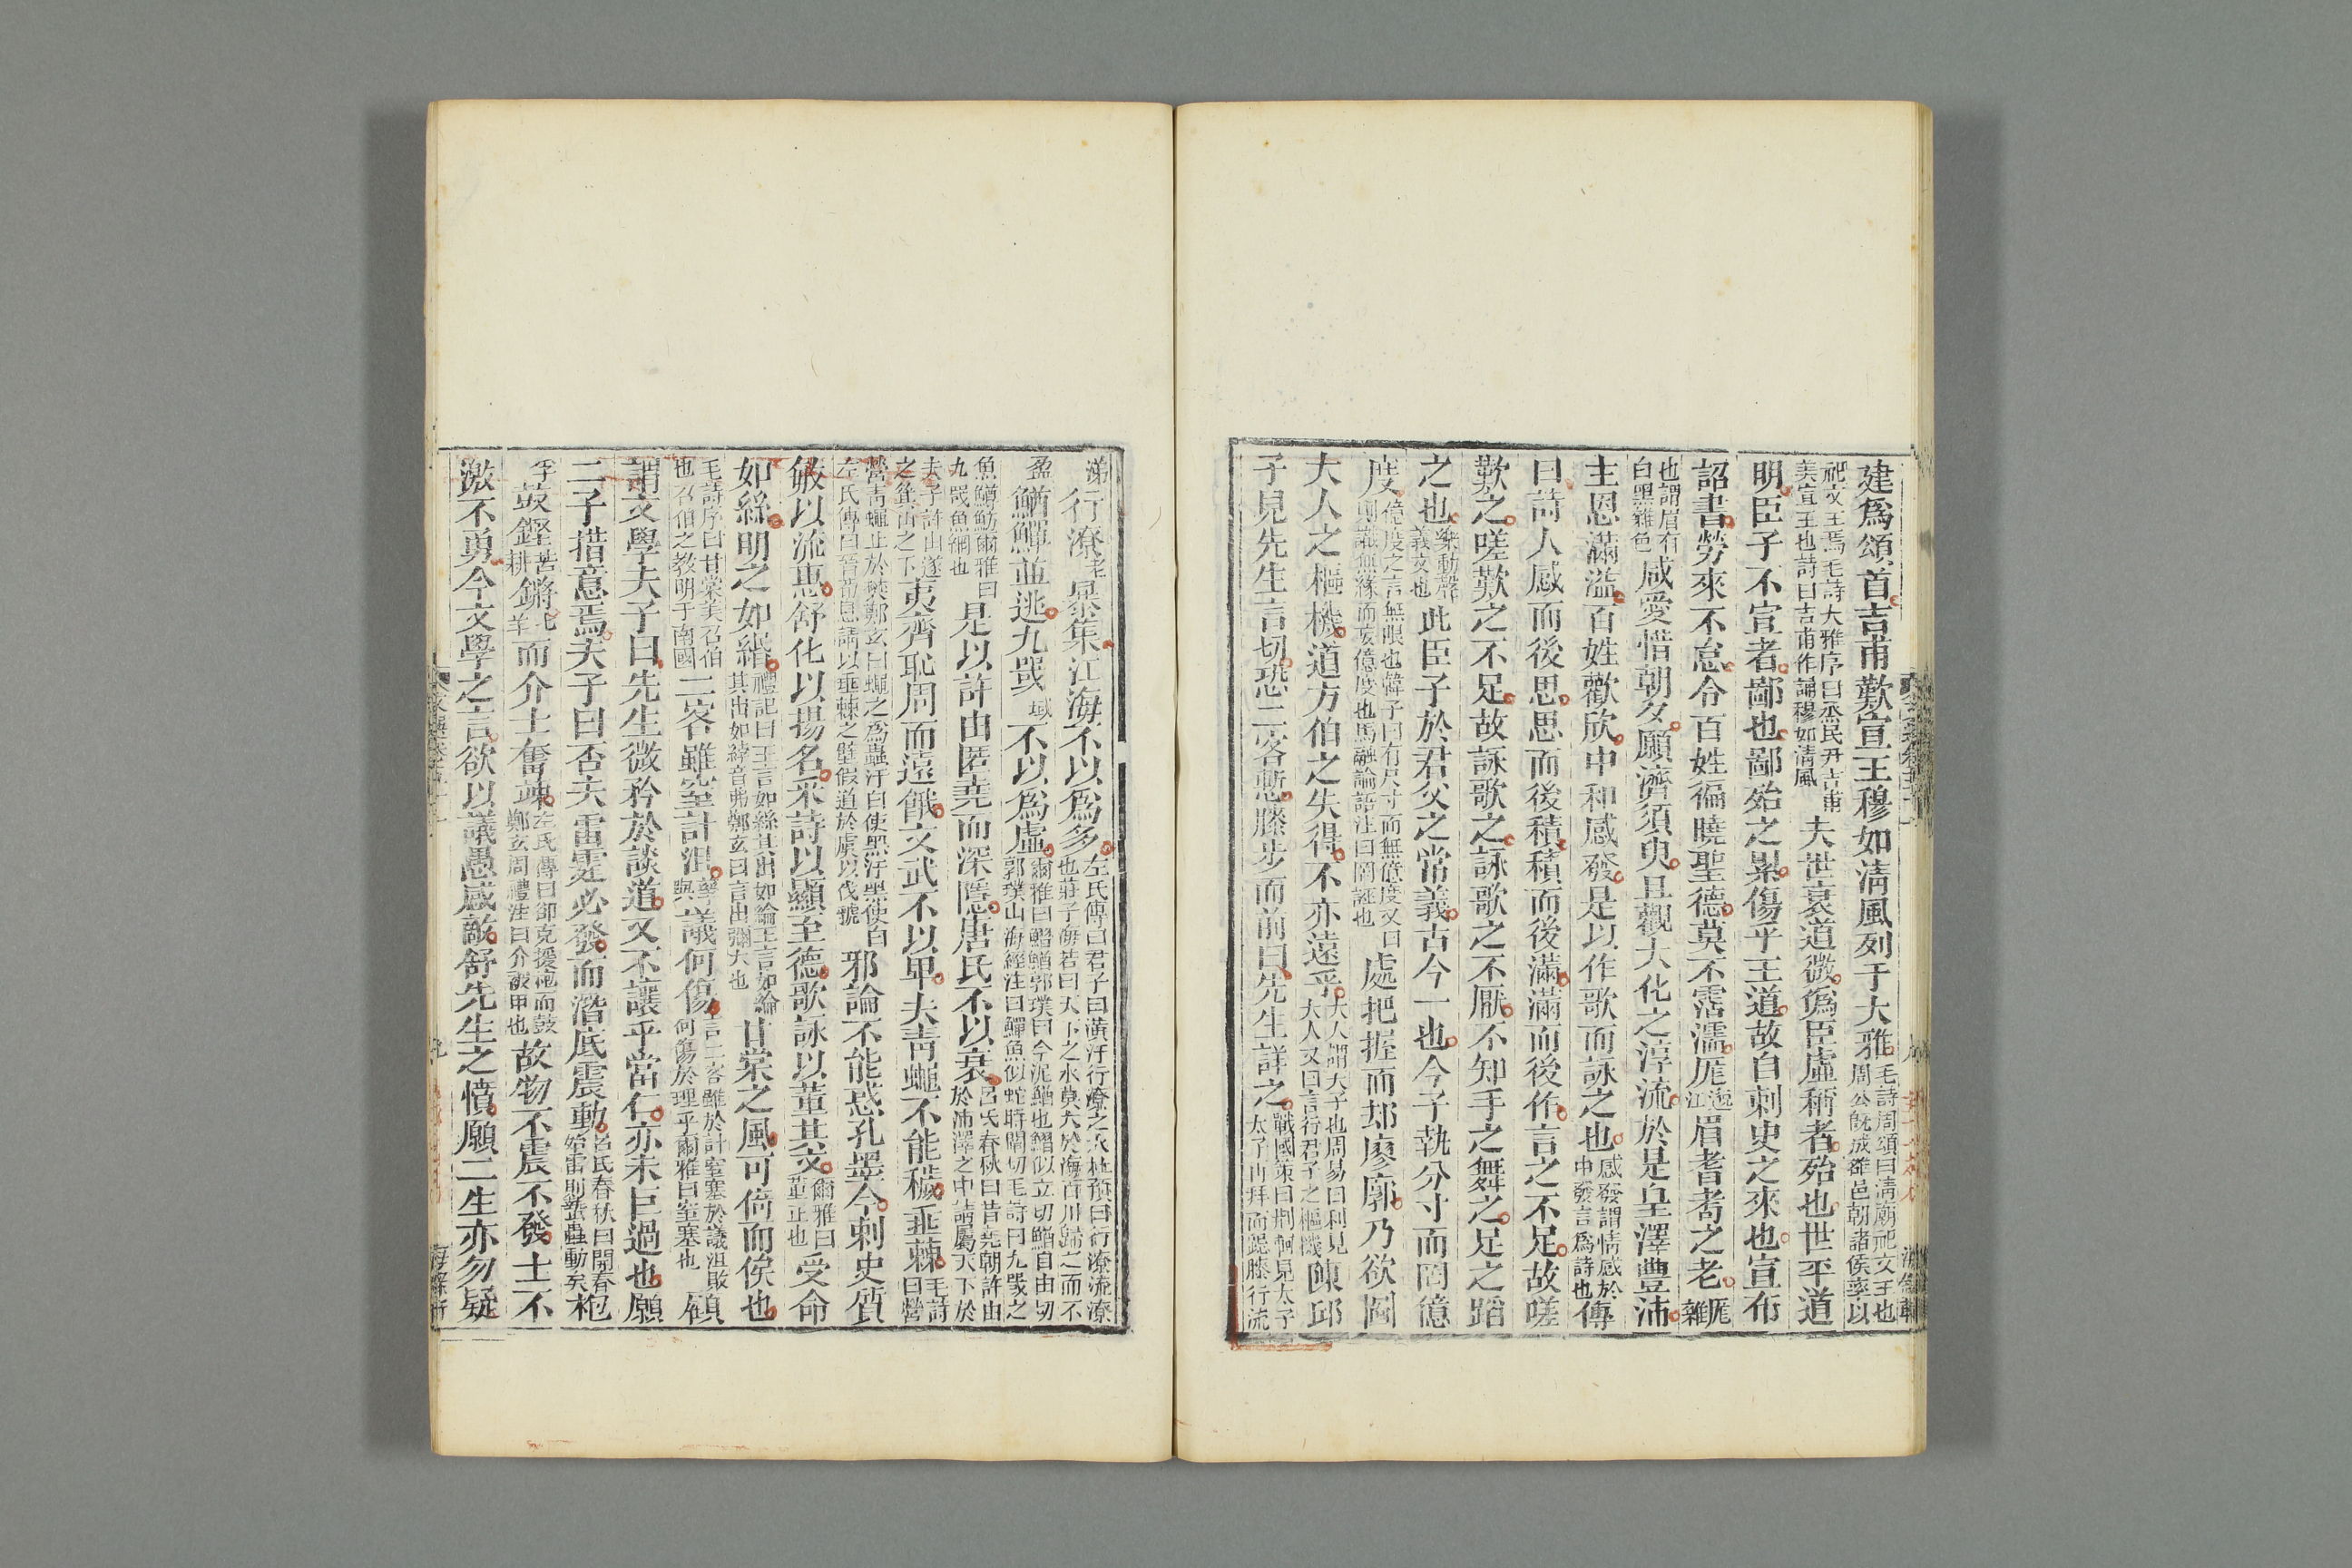 建爲頌首吉甫歎宣王穆如清風列于大雅毛詩周頌曰清廟祀文王也周公旣成雒邑朝諸侯率以
祀文王焉毛詩大雅序曰烝民尹吉甫美宣王也詩曰吉甫作誦穆如清風夫世衰道微僞臣虛稱者殆也世平道
明臣子不宣者鄙也鄙殆之累傷乎王道故自刺史之來也宣布
詔書勞來不怠令百姓徧曉聖德莫不霑濡厖眉耆耇之老厖雜
也謂眉有白黑雜色咸愛惜朝夕願濟須臾且觀大化之淳流於是皇澤豐沛
主恩滿溢百姓歡欣中和感發是以作歌而詠之也感發謂情感於中發言爲詩也傳
曰詩人感而後思思而後積積而後滿滿而後作言之不足故嗟
歎之嗟歎之不足故詠歌之詠歌之不厭不知手之舞之足之蹈
之也樂動聲義文也此臣子於君父之常義古今一也今子執分寸而罔億
度億度之言無限也韓子曰有尺寸而無億度又曰前識無緣而妄億度也馬融論語注曰罔誣也處把握而却廖廓乃欲圖
大人之樞機道方伯之失得不亦遠乎大人謂天子也周易曰利見大人又曰言行君子之樞機陳邱
子見先生言切恐二客慙膝步而前曰先生詳之戰國策曰荆軻見太子太子再拜而跽膝行流
涕行潦老暴集江海不以爲多左氏傳曰君子曰潢汙行潦之水杜預曰行潦流潦也莊子海若曰天下之水莫大於海百川歸之而不
盈鰌鱓並逃九罭域不以爲虛爾雅曰鰼鰌郭璞曰今泥鰌也鰼似立切鰌自由切郭璞山海經注曰鱓魚似蛇時闡切毛詩曰九罭之
魚鱒魴爾雅曰九罭魚網也是以許由匿堯而深隱唐氏不以衰呂氏春秋曰昔堯朝許由於沛澤之中請屬天下於
夫子許由遂之箕山之下夷齊恥周而遠餓文武不以卑夫青蠅不能穢垂棘毛詩曰營
營青蠅止於樊鄭玄曰蠅之爲蟲汙白使黑汙黑使白左氏傳曰晉荀息請以垂棘之璧假道於虞以伐虢邪論不能惑孔墨今刺史質
敏以流惠舒化以揚名采詩以顯至德歌詠以董其文爾雅曰董正也受命
如絲明之如緡禮記曰王言如絲其出如綸王言如綸其出如綍音弗鄭玄曰言出彌大也甘棠之風可倚而俟也
毛詩序曰甘棠美召伯也召伯之教明于南國二客雖窒計沮議何傷言二客雖於計窒塞於議沮敗何傷於理乎爾雅曰窒塞也顧
謂文學夫子曰先生微矜於談道又不讓乎當仁亦未巨過也願
二子措意焉夫子曰否夫雷霆必發而潛底震動呂氏春秋曰開春始雷則蟄蟲動矣枹
孚鼓鏗苦耕鏘七羊而介士奮竦左氏傳曰郤克援枹而鼓鄭玄周禮注曰介被甲也故物不震不發士不
激不勇今文學之言欲以議愚感敵舒先生之憤願二生亦勿疑